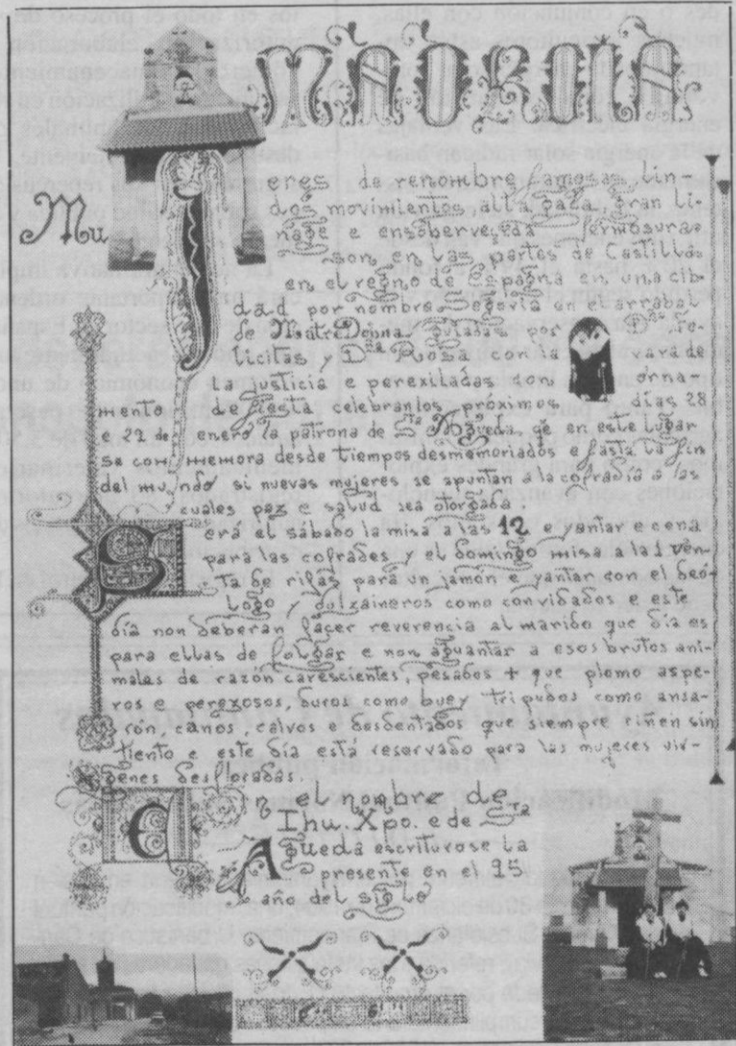 MADRONA
Mugeres de renombre famosas lin-
dos movimientos alta gala, gran li-
nage e ensoberveçida fermosura
son en las partes de Castilla
en el regno de Espagna en una cib-
dad por nombre Segovia en el arrabal
de Matre Donna guiadas por Dña Fe-
licitas y Dña Rosa con la vara de
la justicia e perexiladas con orna-
mento de fiesta celebran los próximos días 28
e 22 de enero la patrona de Sta Agueda, qe en este lugar
se conmemora desde tiempos desmemoriados e fasta la fin
del mundo si nuevas mujeres se apuntan a la cofradía a las
cuales paz e salud sea otorgada.
Será el sábado la misa a las 12 e yantar e cena
para las cofrades y el domingo misa a la 1 ven-
ta de rifas para un jamón e yantar con el beó-
logo y dulzaineros como convidados e este
día non deberan facer reverencia al marido que día es
para ellas de folgar e non aguantar a esos brutos ani-
males de razón carescientes, pesados + que plomo aspe-
ros e perezosos, duros como buey tripudos como ansa-
rón, canos, calvos e desdentados que siempre riñen sin
tiento e este día está reservado para las mujeres vir-
genes desfloradas.
En el nombre de
Ihu. Xpo. e de Sta
Agueda escriturose la
presente en el 95
año del siglo